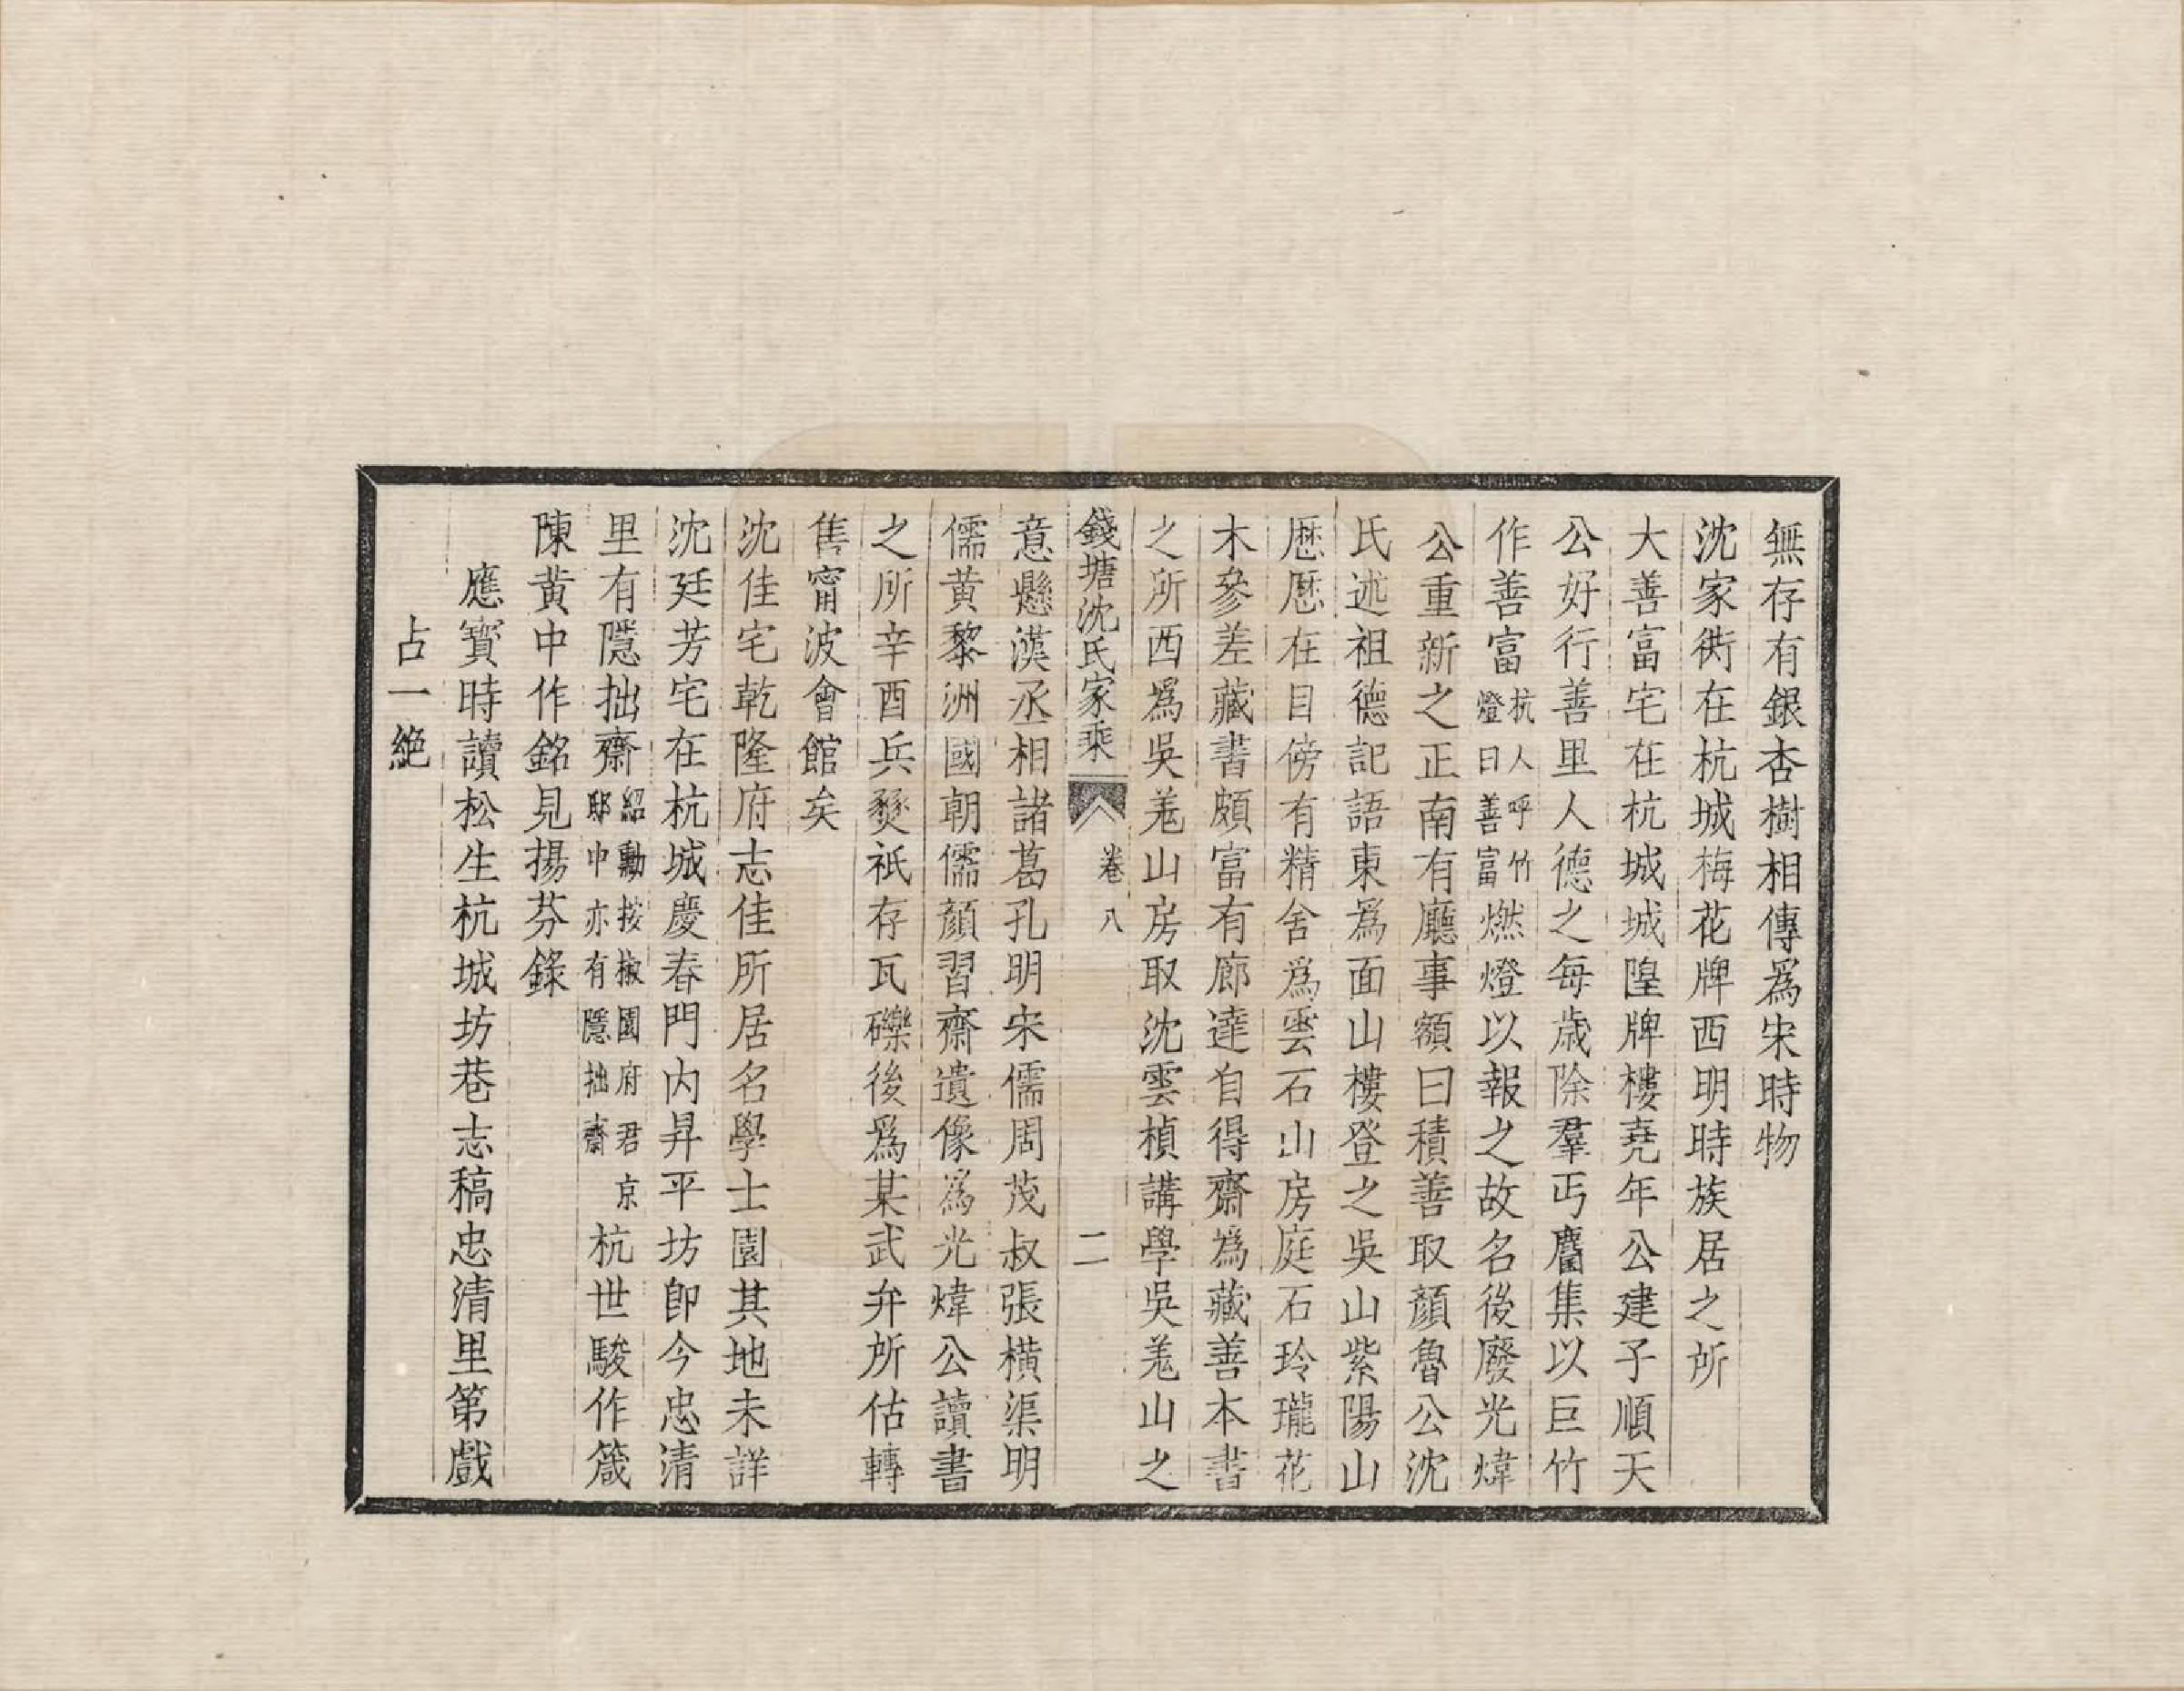 無存有銀杏樹相傳爲宋時物
沈家衖在杭城梅花牌西明時族居之所
大善富宅在杭城城隍牌樓堯年公建子順天
公好行善里人德之每歲除羣丐麕集以巨竹
作善富杭人呼竹燈曰善富燃燈以報之故名後廢光煒
公重新之正南有廳事額曰積善取顏魯公沈
氏述祖德記語東爲面山樓登之吳山紫陽山
歷歷在目傍有精舍爲雲石山房庭石玲瓏花
木參差藏書頗富有廊達自得齋爲藏善本書
之所西爲吳羗山房取沈雲楨講學吳羗山之
錢塘沈氏家乘 卷八 二
意懸漢丞相諸葛孔明宋儒周茂叔張橫渠明
儒黃黎洲國朝儒顏習齋遺像爲光煒公讀書
之所辛酉兵燹祇存瓦礫後爲某武弁所估轉
售甯波會館矣
沈佳宅乾隆府志佳所居名學士園其地未詳
沈廷芳宅在杭城慶春門內昇平坊卽今忠清
里有隱拙齋紹勳按椒園府君京邸中亦有隱拙齋杭世駿作箴
陳黃中作銘見揚芬錄
應寶時讀松生杭城坊巷志稿忠清里第戲
占一絕